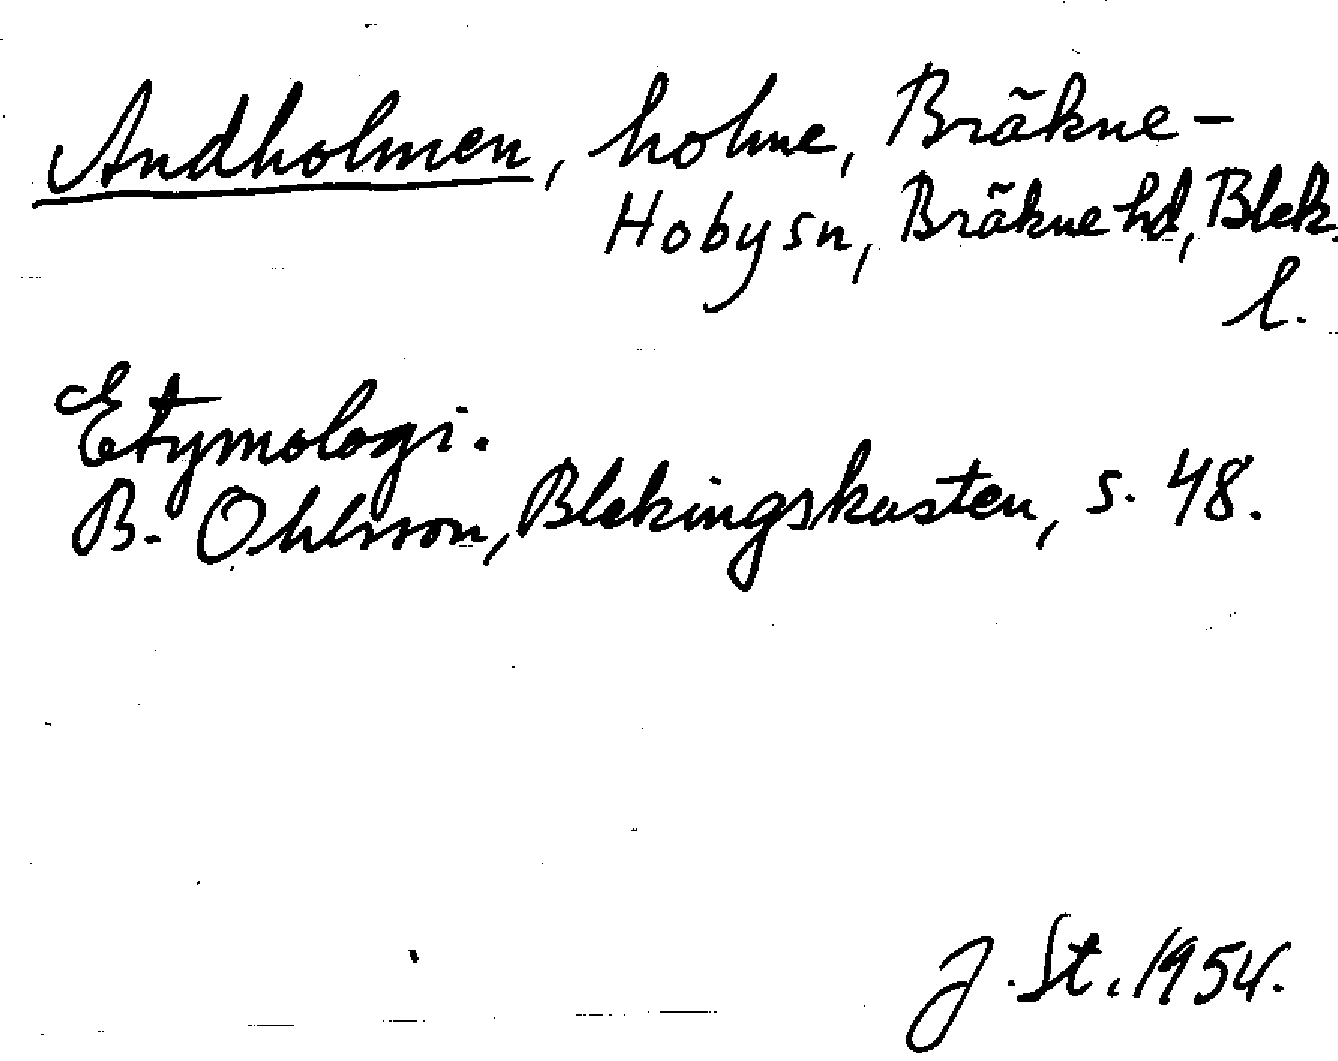 Andholmen, holme, Bräkne-
Hoby sn, Bräkne hd, Blek.
l.
Etymologi.
B. Ohlsson, Blekingskusten, s. 48.
J. St. 1954.